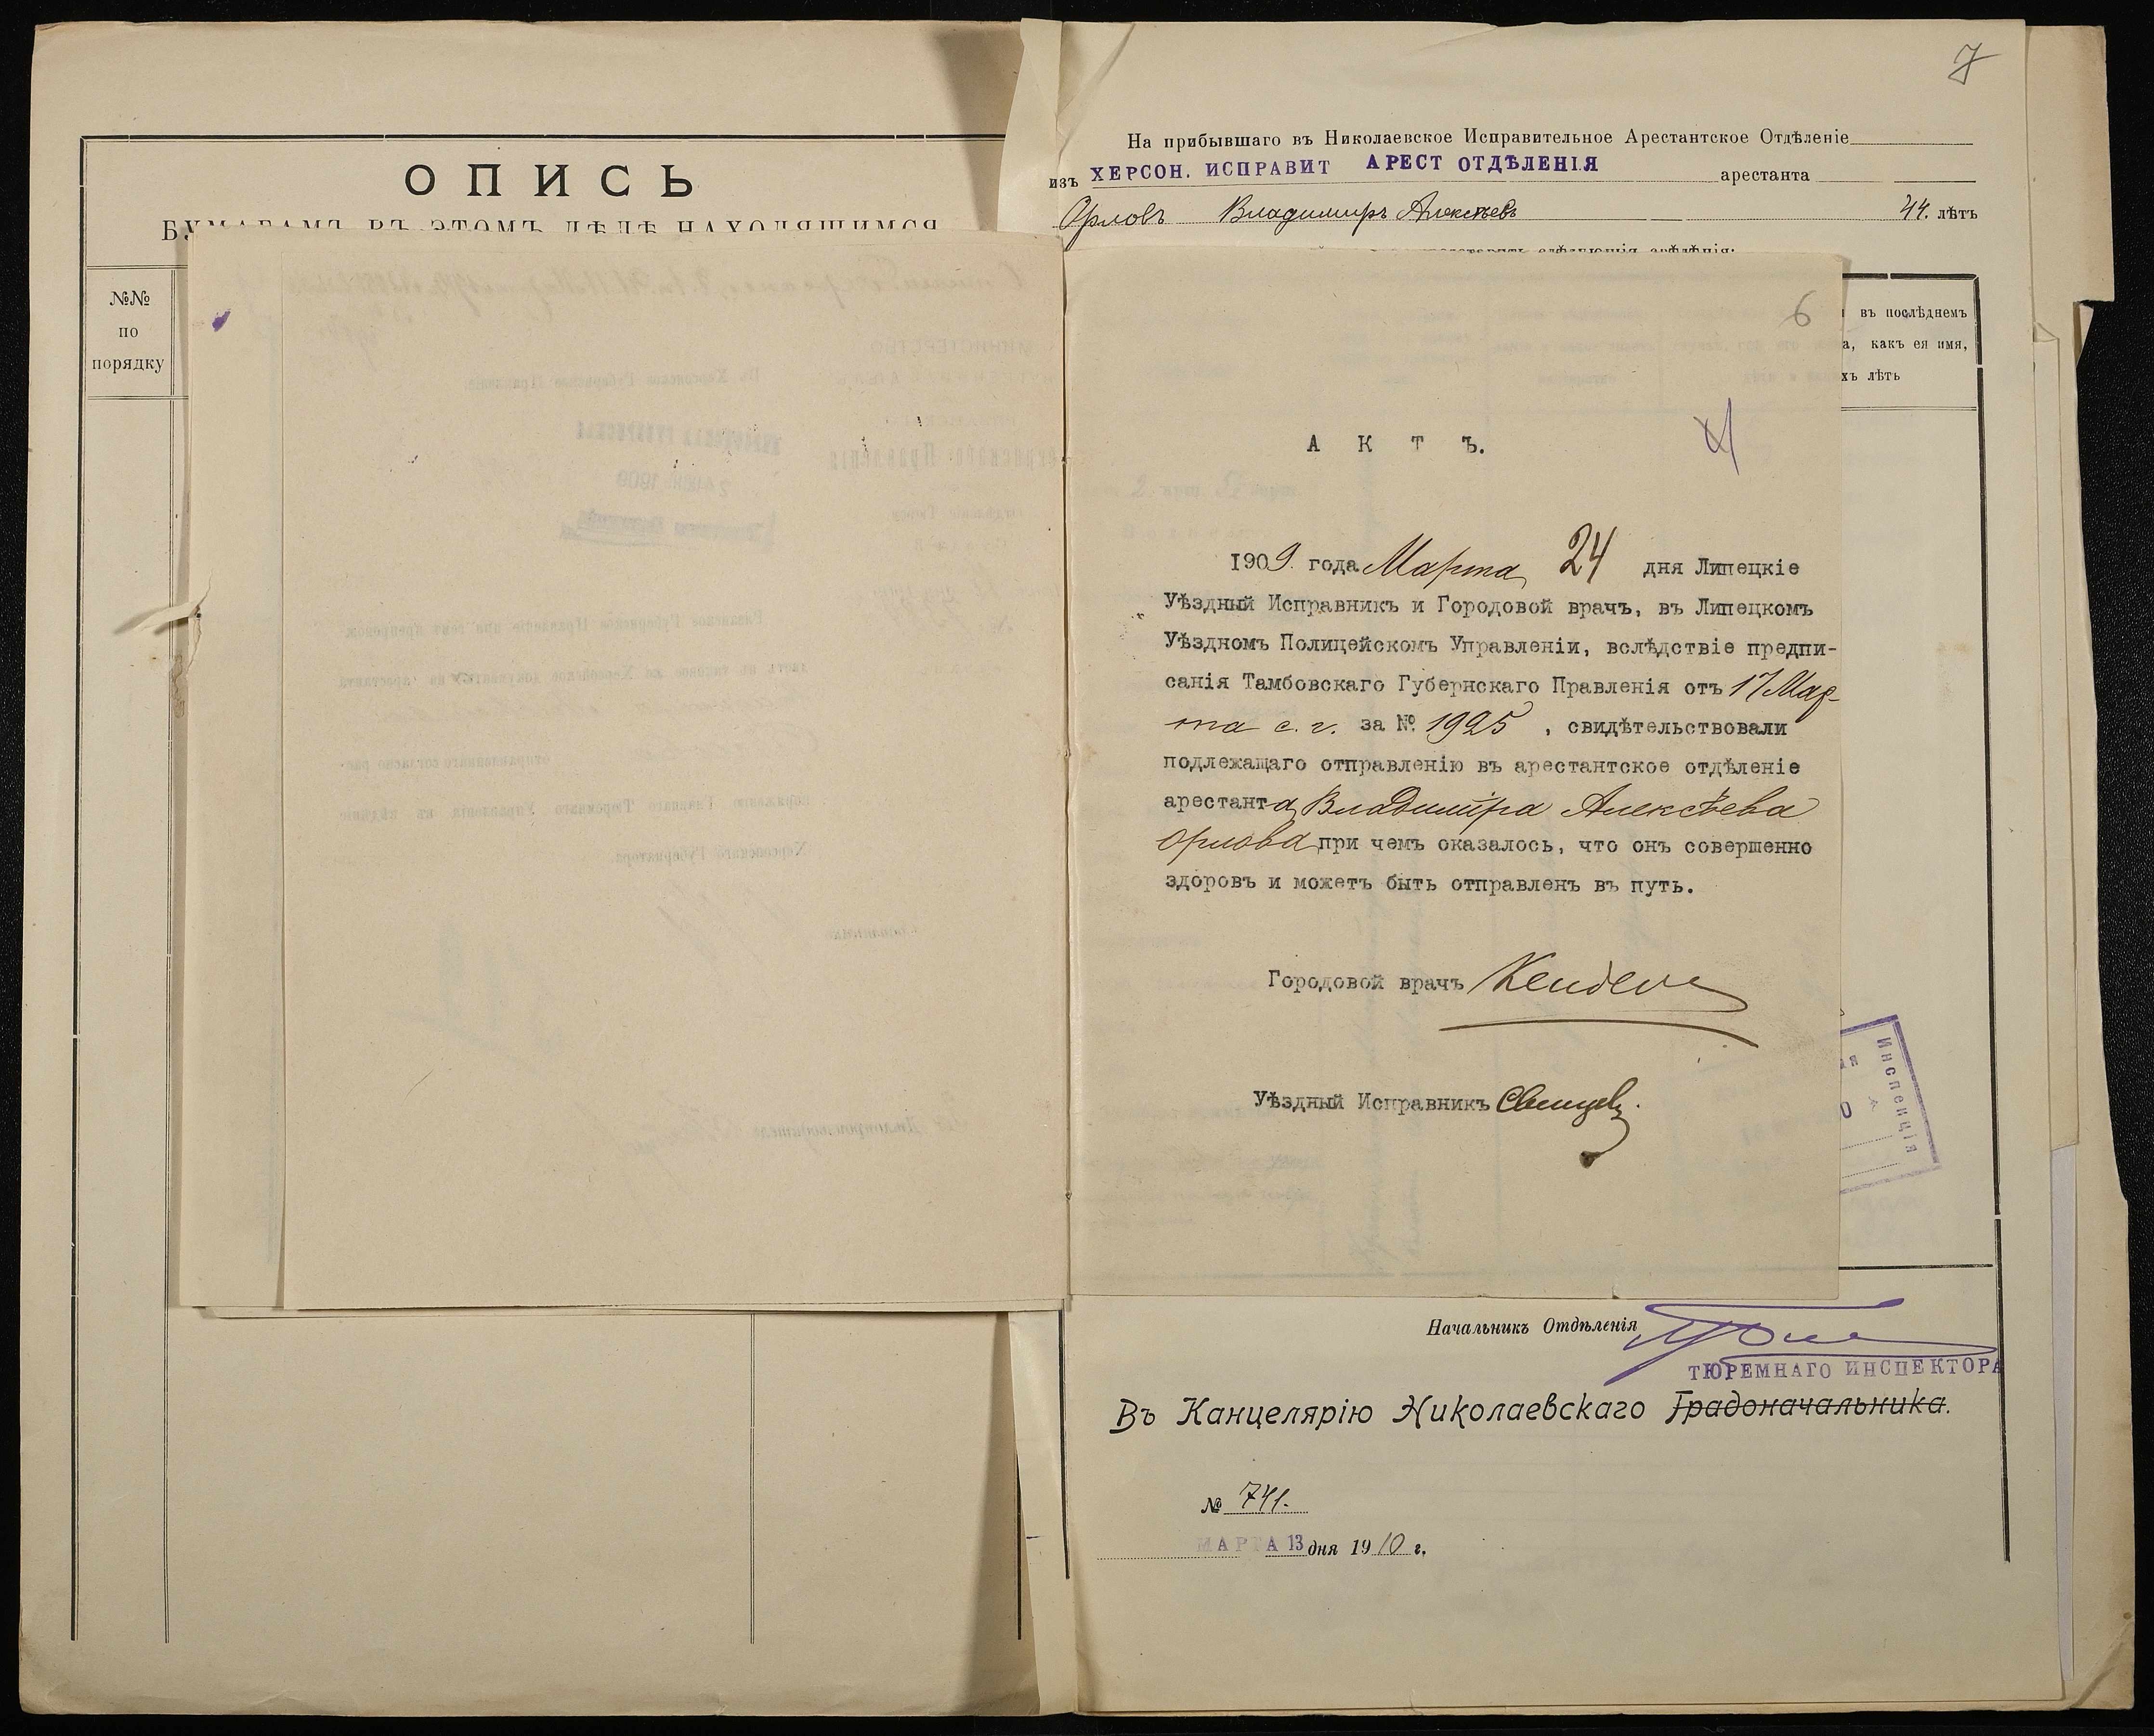 7
ОПИСЬ
БУМАГАМЪ ВЪ ЭТОМЪ ДѢЛѢ НАХОДЯЩИМСЯ
№№
по
порядку
На прибывшаго въ Николаевское Исправительное Арестантское Отдѣленіе
изъ ХЕРСОН. ИСПРАВИТ АРЕСТ ОТДѢЛЕНІЯ арестанта
Орловъ Владимиръ Алексѣевъ 44. лѣтъ
слѣдующія свѣдѣнія:
въ послѣднемъ
а, какъ ея имя,
хъ лѣтъ
6
АКТЪ.
1909. года Марта 24 дня Липецкіе
Уѣздный Исправникъ и Городовой врачъ, въ Липецкомъ
Уѣздномъ Полицейскомъ Управленіи, вслѣдствіе предпи-
санія Тамбовскаго Губернскаго Правленія отъ 17 Мар-
та с. г. за № 1925, свидѣтельствовали
подлежащаго отправленію въ арестантское отдѣленіе
арестанта Владиміра Алексѣева
Орлова при чемъ оказалось, что онъ совершенно
здоровъ и можетъ быть отправленъ въ путь.
Городовой врачъ
Уѣздный Исправникъ
Инспекція
Начальникъ Отдѣленія
ТЮРЕМНАГО ИНСПЕКТОРА
Въ Канцелярію Николаевскаго Градоначальника.
№ 741.
МАРТА 13 дня 1910 г.